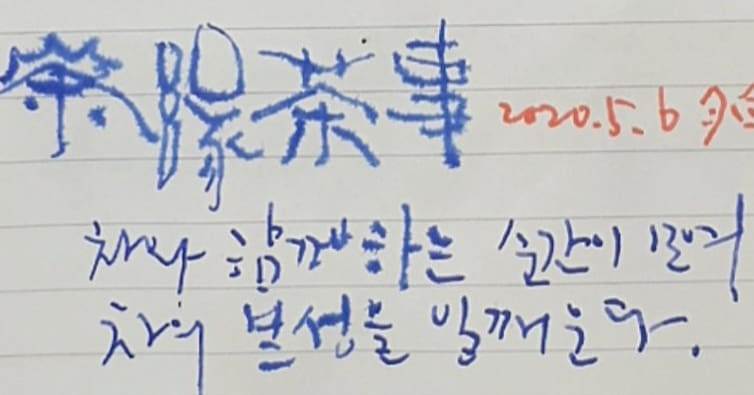 茶事 2020.5.6
차와 함께하는 순간이
차의 본성을 일깨운다.